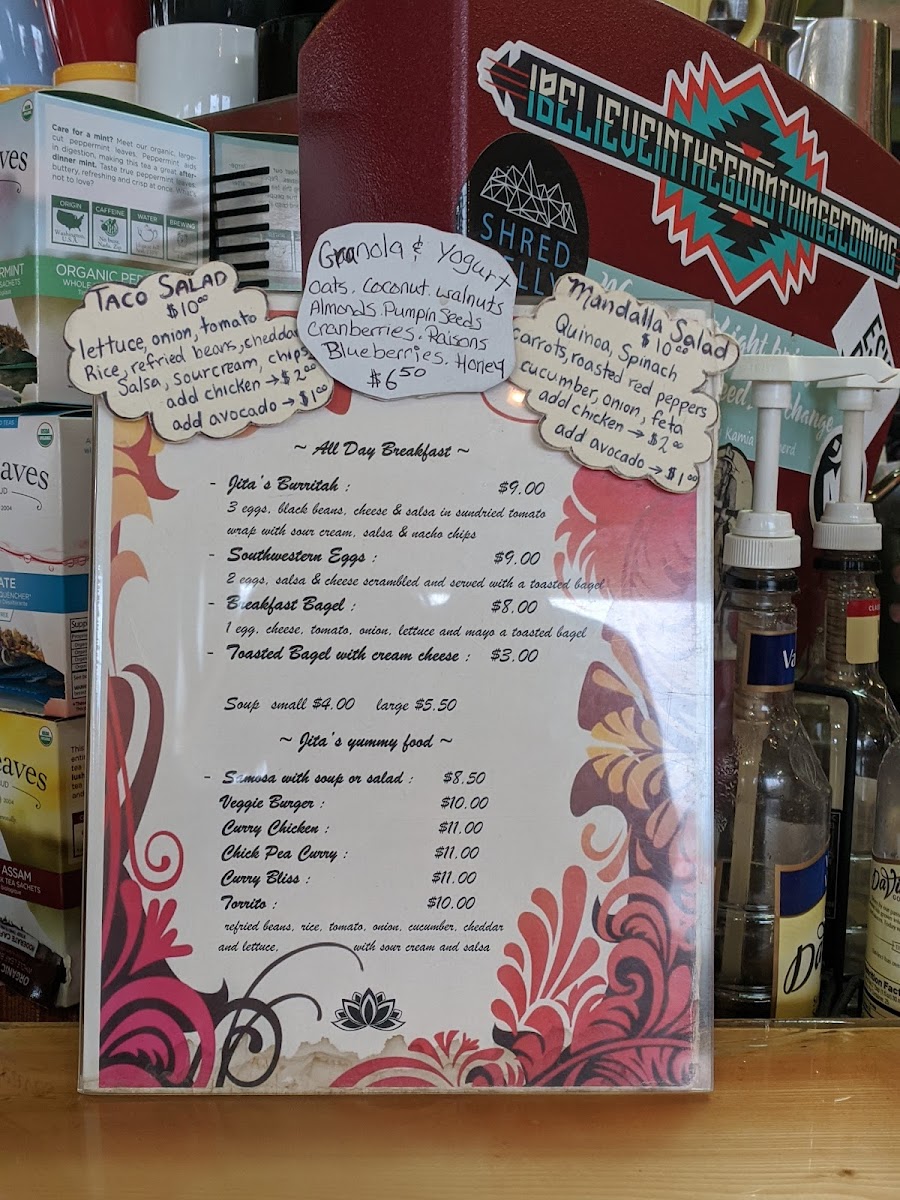 Care for a mint? Meet our organic, large-
cut peppermint leaves. Peppermint aids
in digestion, making this tea a great after-
dinner mint. Taste true peppermint leaves,
buttery, refreshing and crisp at once. What's
not to love?
ORIGIN
CAFFEINE
WATER
BREWING
Washington,
U.S.A.
ORGANIC PEP
WHOLE
IBELIEVEINTHEGOODTHINGSCOMING
SHRED
TACO SALAD
$10.00
lettuce, onion, tomato
Rice, refried beans, chedda
Salsa, sourcream, chips
add chicken → $2.00
add avocado → $1.00
Granola & Yogurt
Oats. Coconut. walnuts
Almonds. Pumpin Seeds
Cranberries. Raisons
Blueberries. Honey
$6.50
Mandalla Salad
$10.00
Quinoa, Spinach
carrots, roasted red peppers
cucumber, onion, feta
add chicken → $2.00
add avocado → $1.00
~ All Day Breakfast ~
- Jita's Burritah : $9.00
3 eggs, black beans, cheese & salsa in sundried tomato
wrap with sour cream, salsa & nacho chips
- Southwestern Eggs : $9.00
2 eggs, salsa & cheese scrambled and served with a toasted bagel
- Breakfast Bagel : $8.00
1 egg, cheese, tomato, onion, lettuce and mayo a toasted bagel
- Toasted Bagel with cream cheese : $3.00
Soup small $4.00 large $5.50
~ Jita's yummy food ~
- Samosa with soup or salad : $8.50
Veggie Burger : $10.00
Curry Chicken : $11.00
Chick Pea Curry : $11.00
Curry Bliss : $11.00
Torrito : $10.00
refried beans, rice, tomato, onion, cucumber, cheddar
and lettuce, with sour cream and salsa
eaves
ASSAM